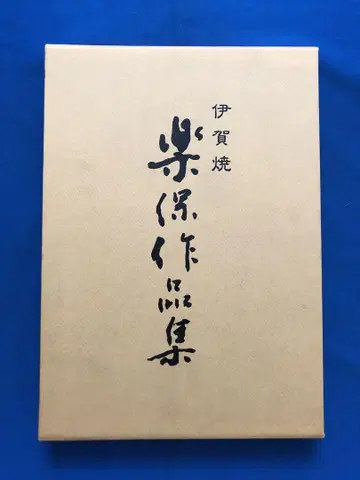 伊賀焼
楽保作品集